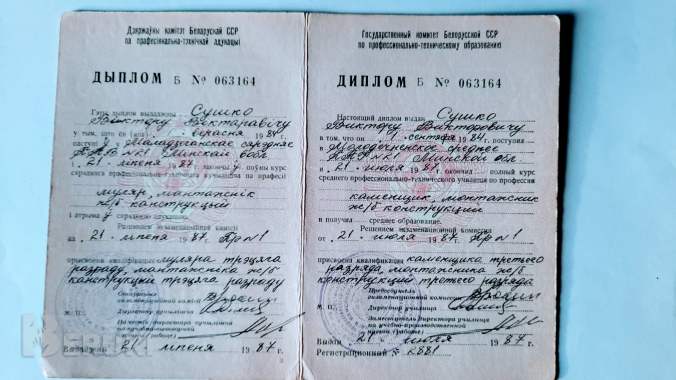 Дзяржаўны камітэт Беларускай ССР
па прафесійна-тэхнічнай адукацыі
ДЫПЛОМ Б № 063164
Гэты дыплом выдадзены Сушко
Віктару Віктаравічу
у тым, што ён верасня 1984 г.
паступіў Маладзечанскае сярэдняе
Мінскай вобл.
і 21 ліпеня 1987 г. скончыў поўны курс
сярэдняга прафесійна-тэхнічнага вучылішча па прафесіі
муляр, мантажнік
ж/б канструкцый
і атрымаў сярэднюю адукацыю.
Рашэннем экзаменацыйнай камісіі
ад 21 ліпеня 1987 г. Пр N1
прысвоена кваліфікацыя муляра трэцяга
разраду, мантажніка ж/б
канструкцый трэцяга разраду
Старшыня
экзаменацыйнай камісіі
Дырэктар вучылішча
М. П.
Выдадзены 21 ліпеня 1987 г.
Государственный комитет Белорусской ССР
по профессионально-техническому образованию
ДИПЛОМ Б № 063164
Настоящий диплом выдан Сушко
Виктору Викторовичу
в том, что он 1 сентября 1984 г. поступил
в Молодечненское среднее
ПТУ N21 Минской обл.
и 21 июля 1987 г. окончил полный курс
среднего профессионально-технического училища по профессии
каменщик, монтажник
ж/б конструкций
и получил среднее образование.
Решением экзаменационной комиссии
от 21 июля 1987 г. Пр N1
присвоена квалификация каменщика третьего
разряда, монтажника ж/б
конструкций третьего разряда
Председатель
экзаменационной комиссии
Директор училища
М. П.
Заместитель директора училища
по учебно-производственной
работе
Выдан 21 июля 1987 г.
Регистрационный № 2881